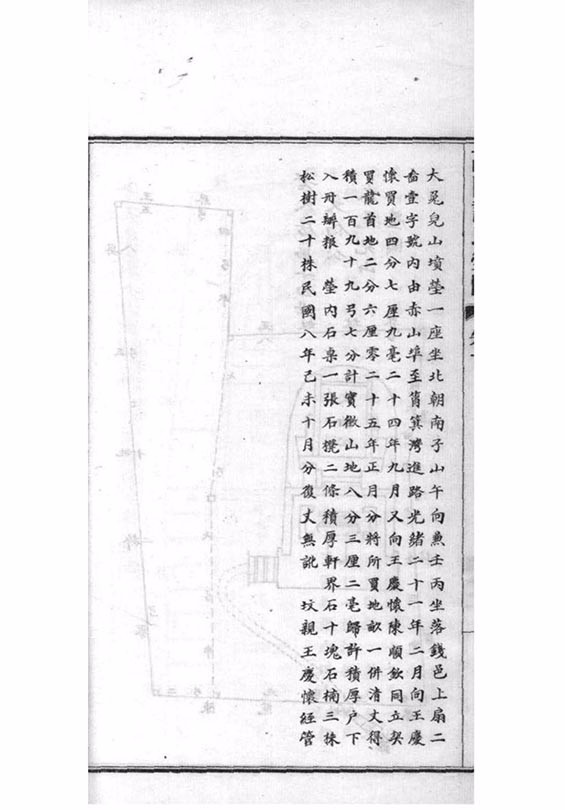 大兎兒山墳塋一座坐北朝南子山午向兼壬丙坐落錢邑上扇二
畲壹字號內由赤山埠至筲箕灣進路光緒二十一年二月向王慶
懷買地四分七厘九毫二十四年九月又向王慶懷陳順欽同立契
買龍首地二分六厘零二十五年正月分將所買地畝一併清丈得
積一百九十九弓七分計實徵山地八分三厘二毫歸許積厚户下
入冊辦粮 塋內石桌一張石櫈二條積厚軒界石十塊石楠三株
松樹二十株民國八年己未十月分復丈無訛 坟親王慶懷經管